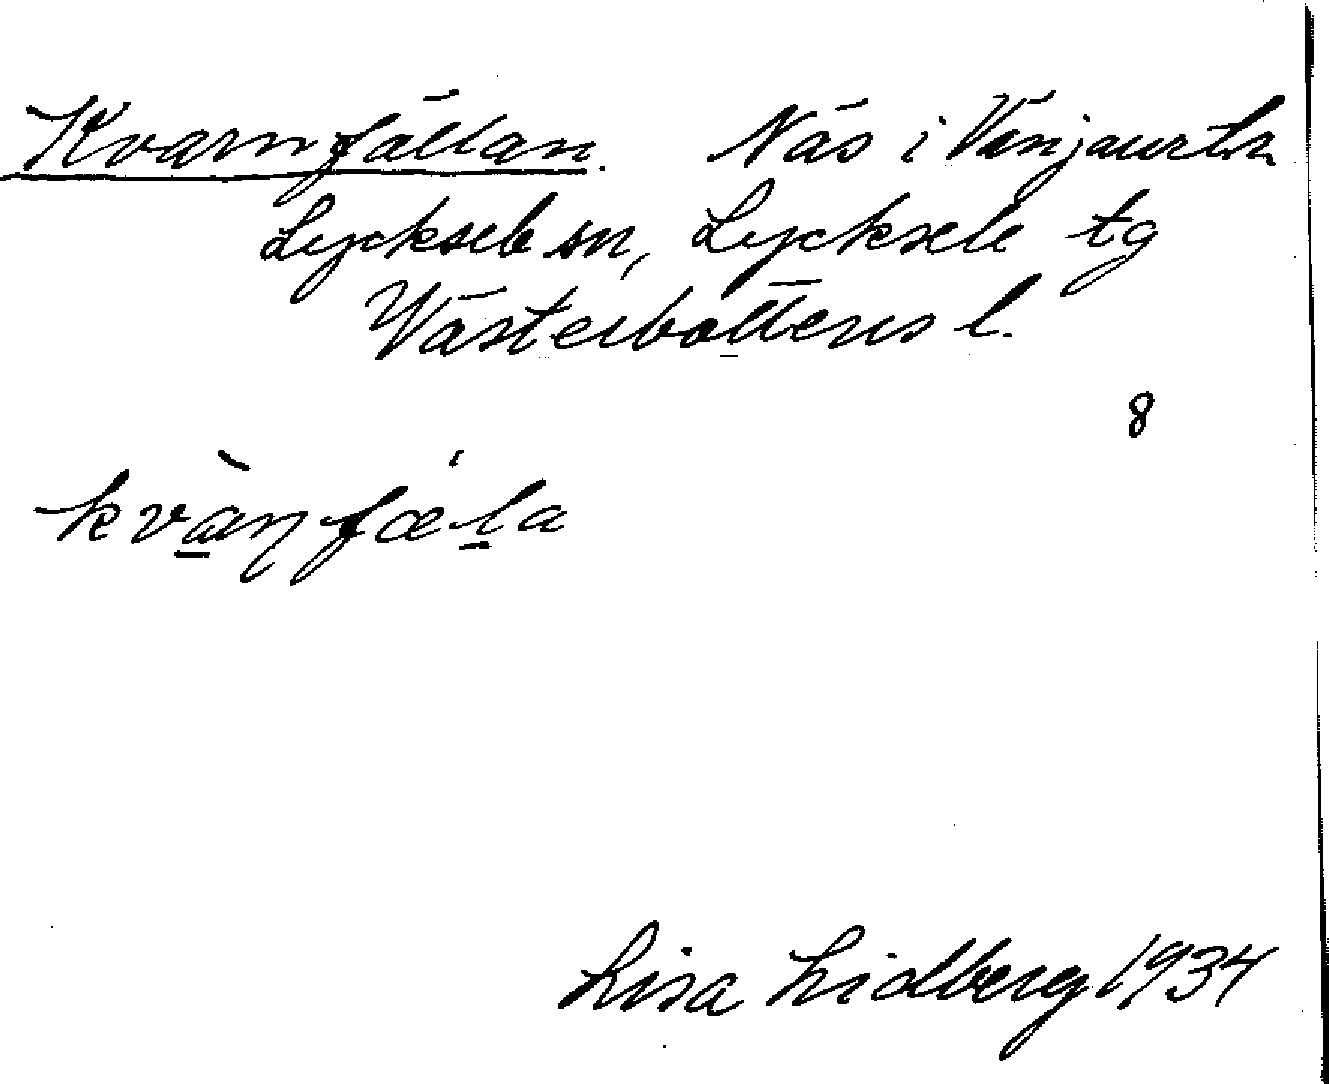 Kvarnfällan. Näs i Vänjaurtr.
Lycksele sn, Lycksele tg
Västerbottens l.
8
kvàṉfæ̀ḻa
Lisa Lidberg 1934